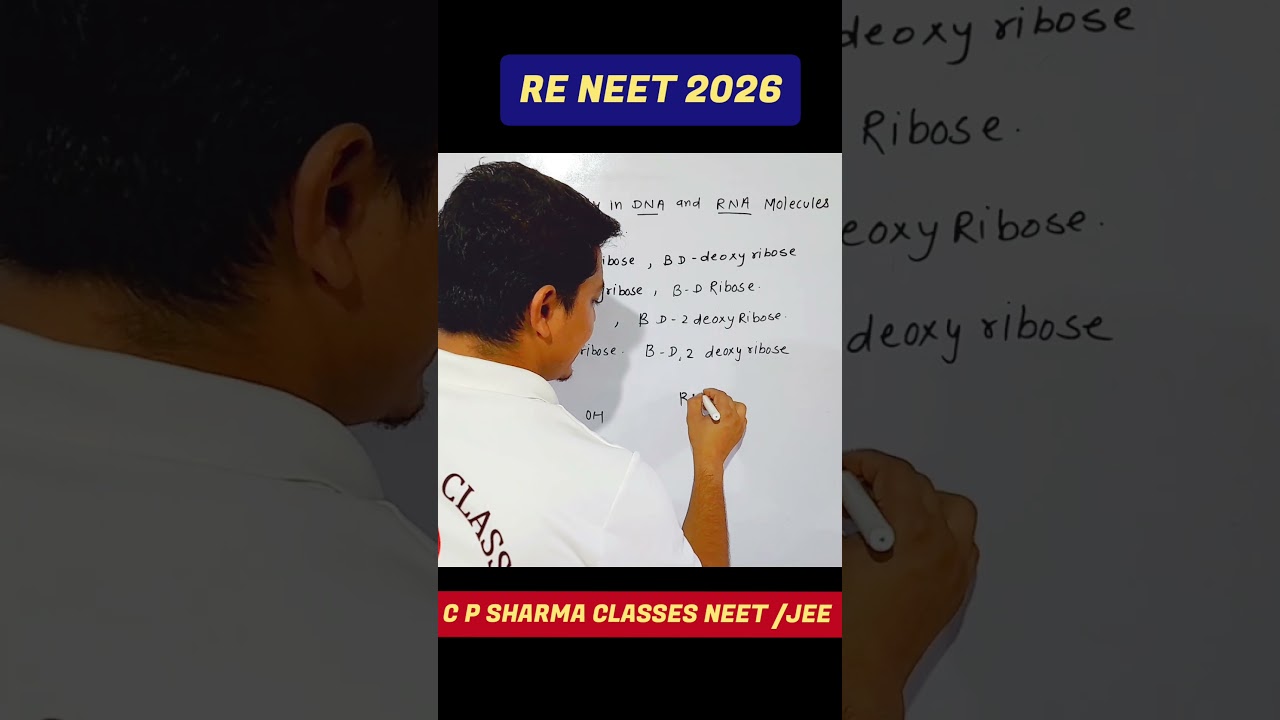 RE NEET 2026
in DNA and RNA Molecules
ibose , B D-deoxy ribose
ribose , B-D Ribose.
, B D-2 deoxy Ribose.
ribose. B-D, 2 deoxy ribose
OH
R
CLASS
C P SHARMA CLASSES NEET /JEE
deoxy ribose
Ribose.
eoxy Ribose.
deoxy ribose